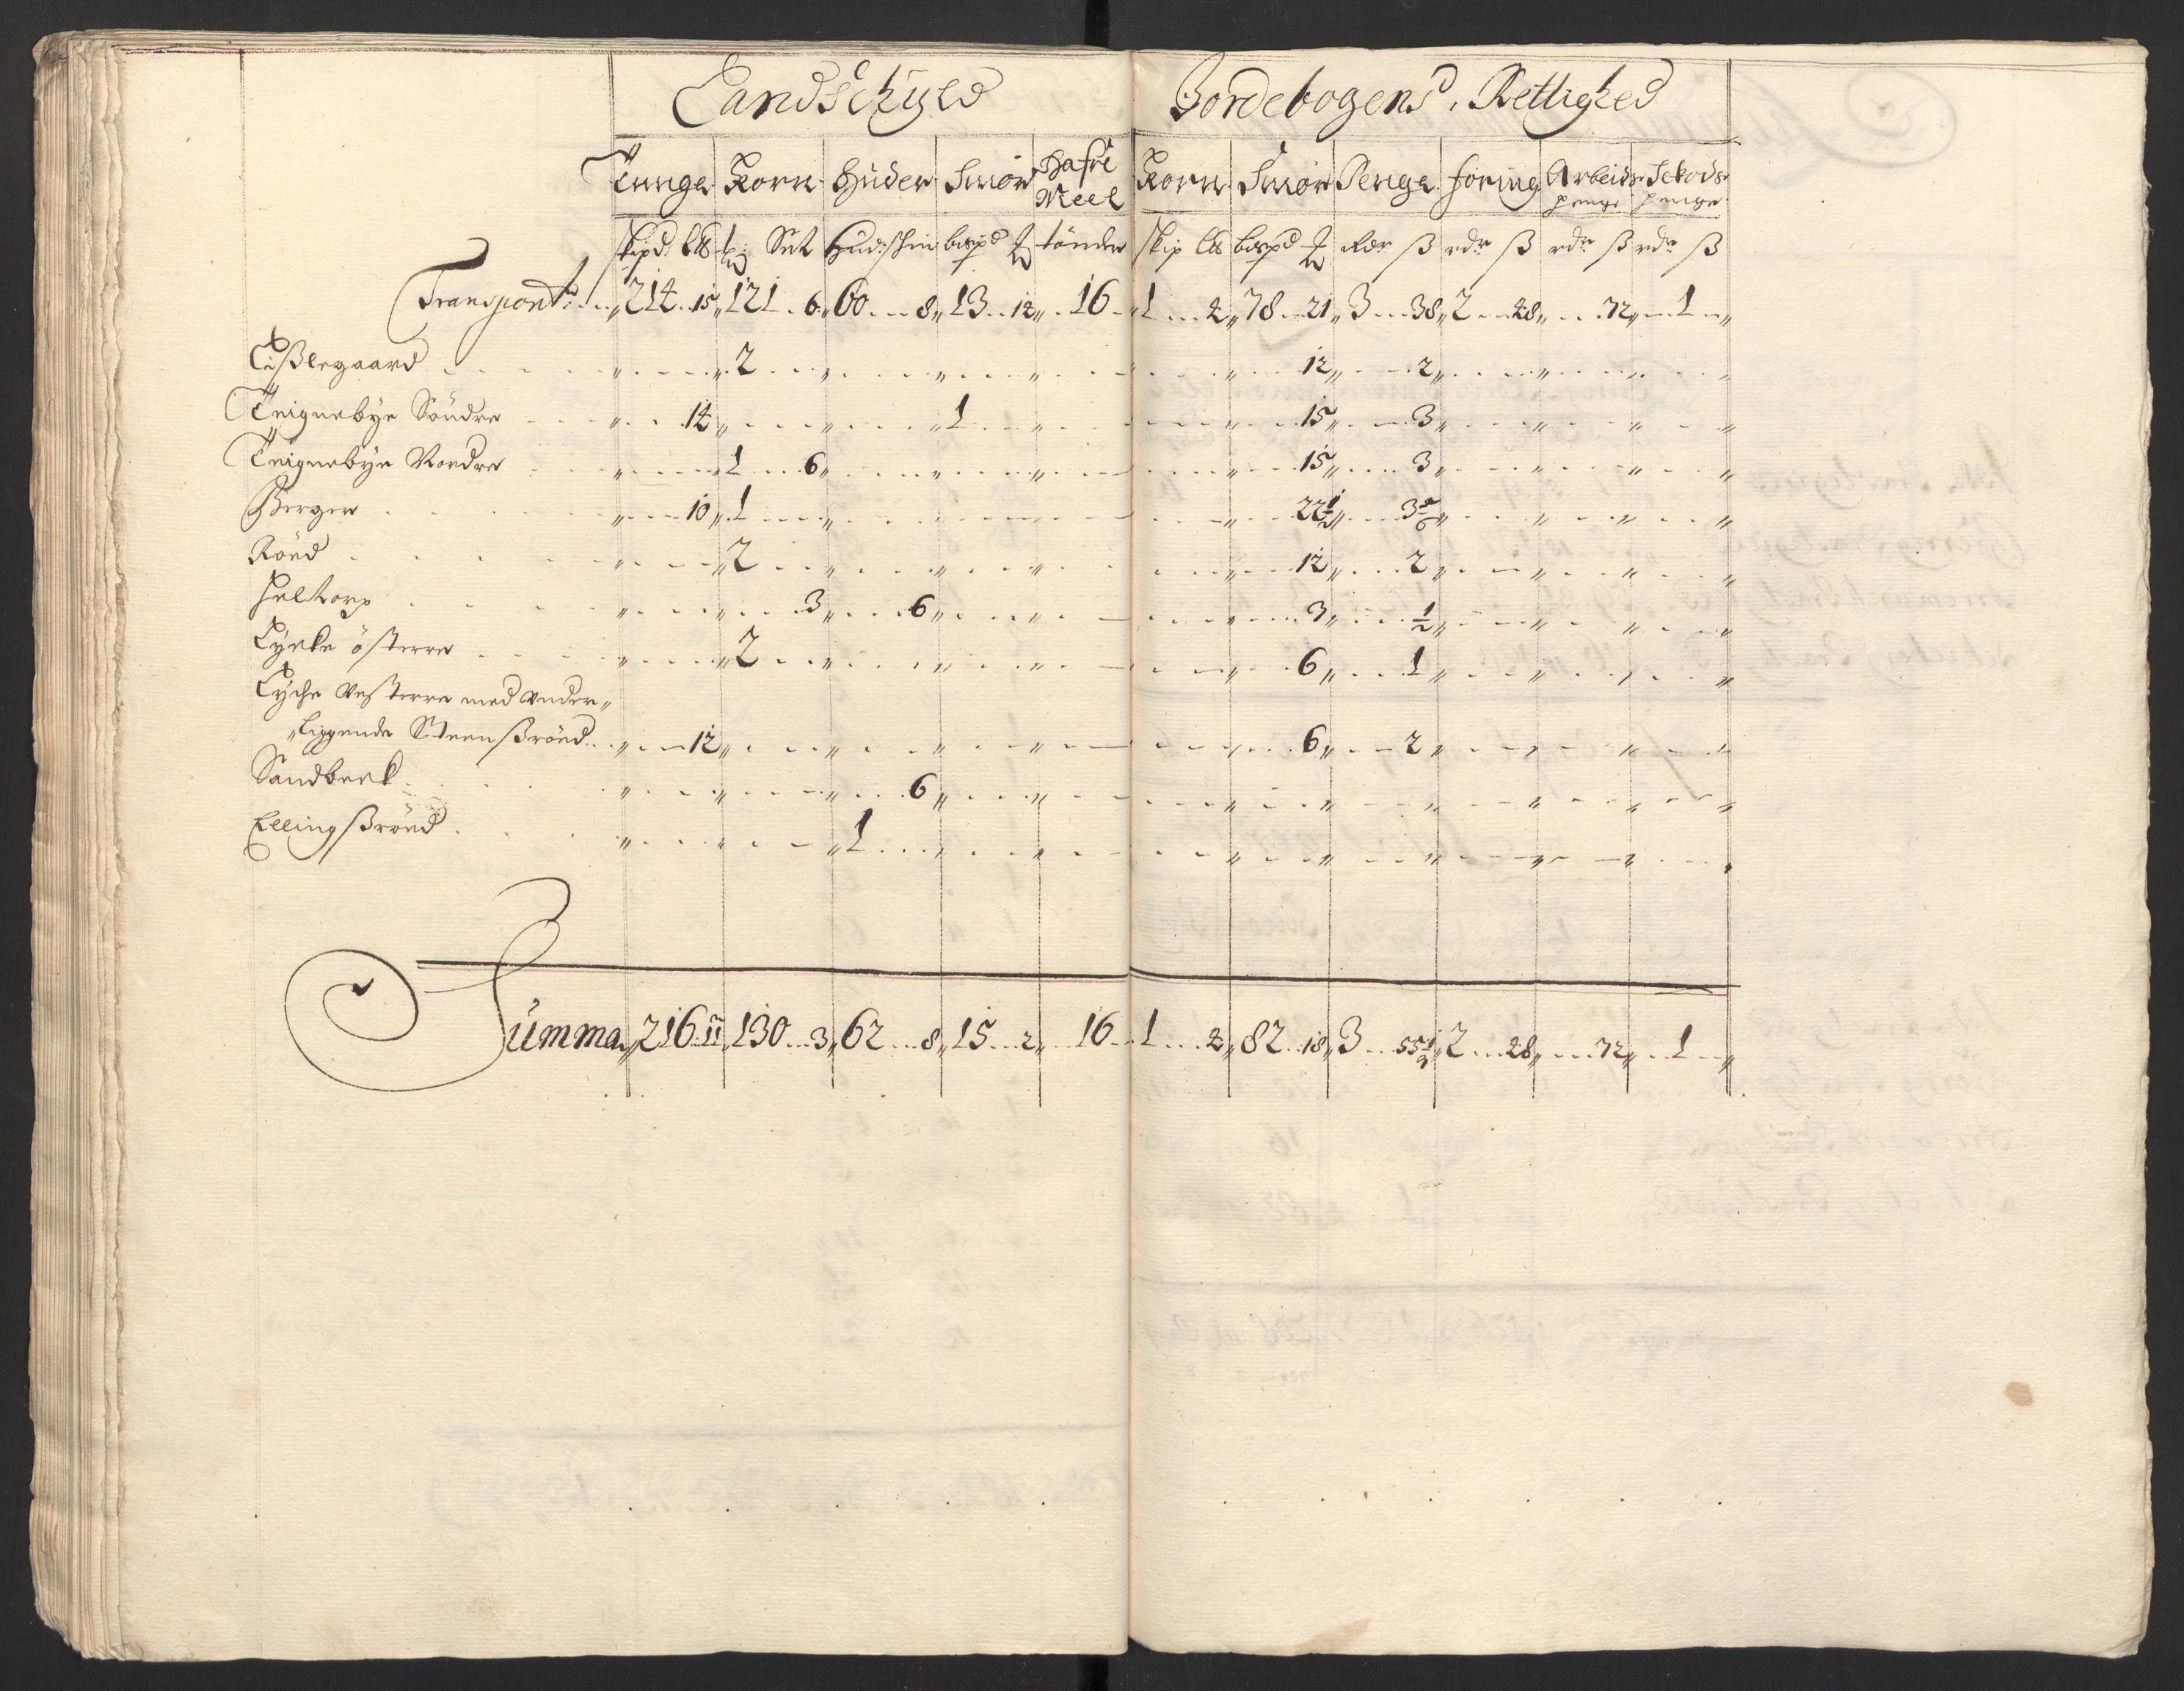 Landschyld Jordebogens Rettighed
Tunge Korn Huder Smör Hafre Meel Korn Smör Penge foring Arbeids penge Schods penge
skipd: l℔ Set Hud: schin bispd tönder skip l℔ bispd Rdr ß rdr ß rdr ß rdr ß
Transport 214 15 121 6 60 8 13 12 16 1 2 78 21 3 38 2 28 72 1
Tißlegaard 2 12 2
Teignebye Söndre 14 1 15 3
Teignebye Nordre 1 6 15 3
Berger 10 1 22½ 3
Röed 2 12 2
Heltorp 3 6 3 ½
Lycke österre 2 6 1
Lyche Vesterre med under
liggende Steensröed 12 6 2
Sandbeck 6
Ellingsröed 1
Summa 216 11 130 3 62 8 15 2 16 1 2 82 18 3 55½ 2 28 72 1